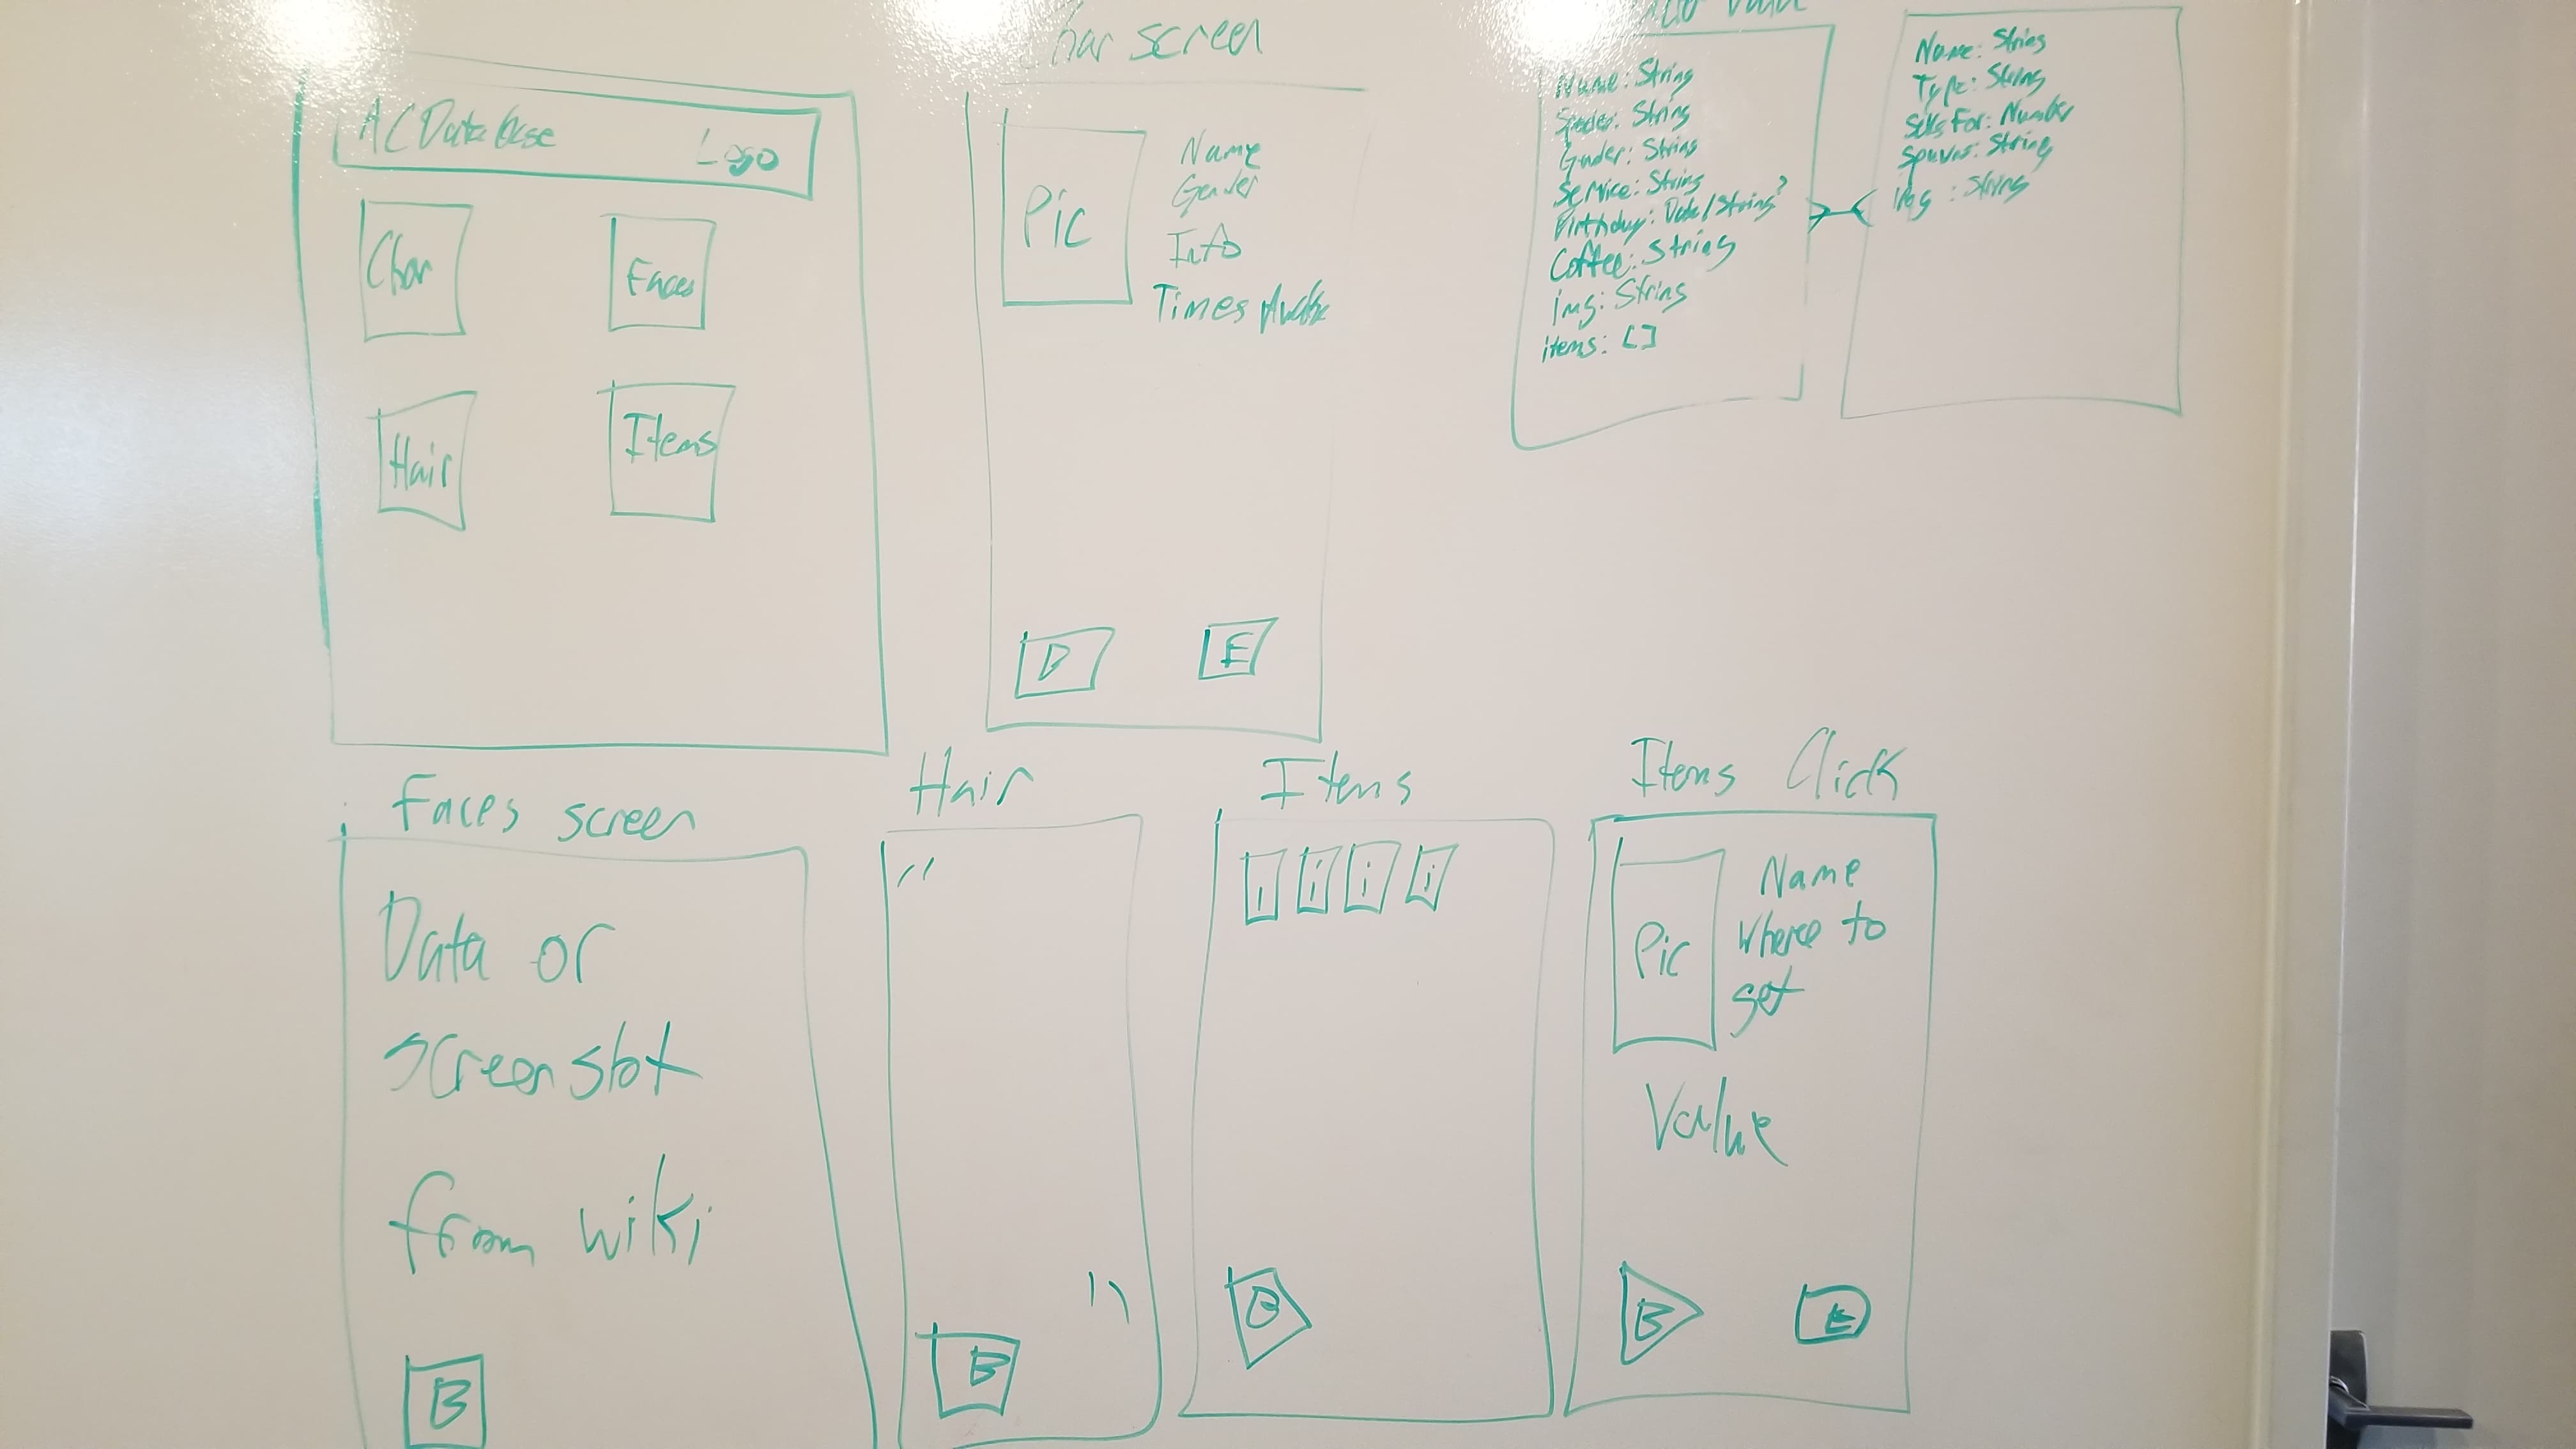 AC Database Logo
Char
Faces
Hair
Items
screen
Pic
Name
Gender
Info
Times
E
Name: String
String
Gender: String
Service: String
Birthday: Date/String?
Coffee: String
img: String
items: []
Name: String
Type: String
Sells For: Number
String
img: String
Faces screen
Data or
screenshot
from wiki
B
Hair
"
"
B
Items
i i i i
B
Items Click
Pic
Name
Where to
get
Value
B
E